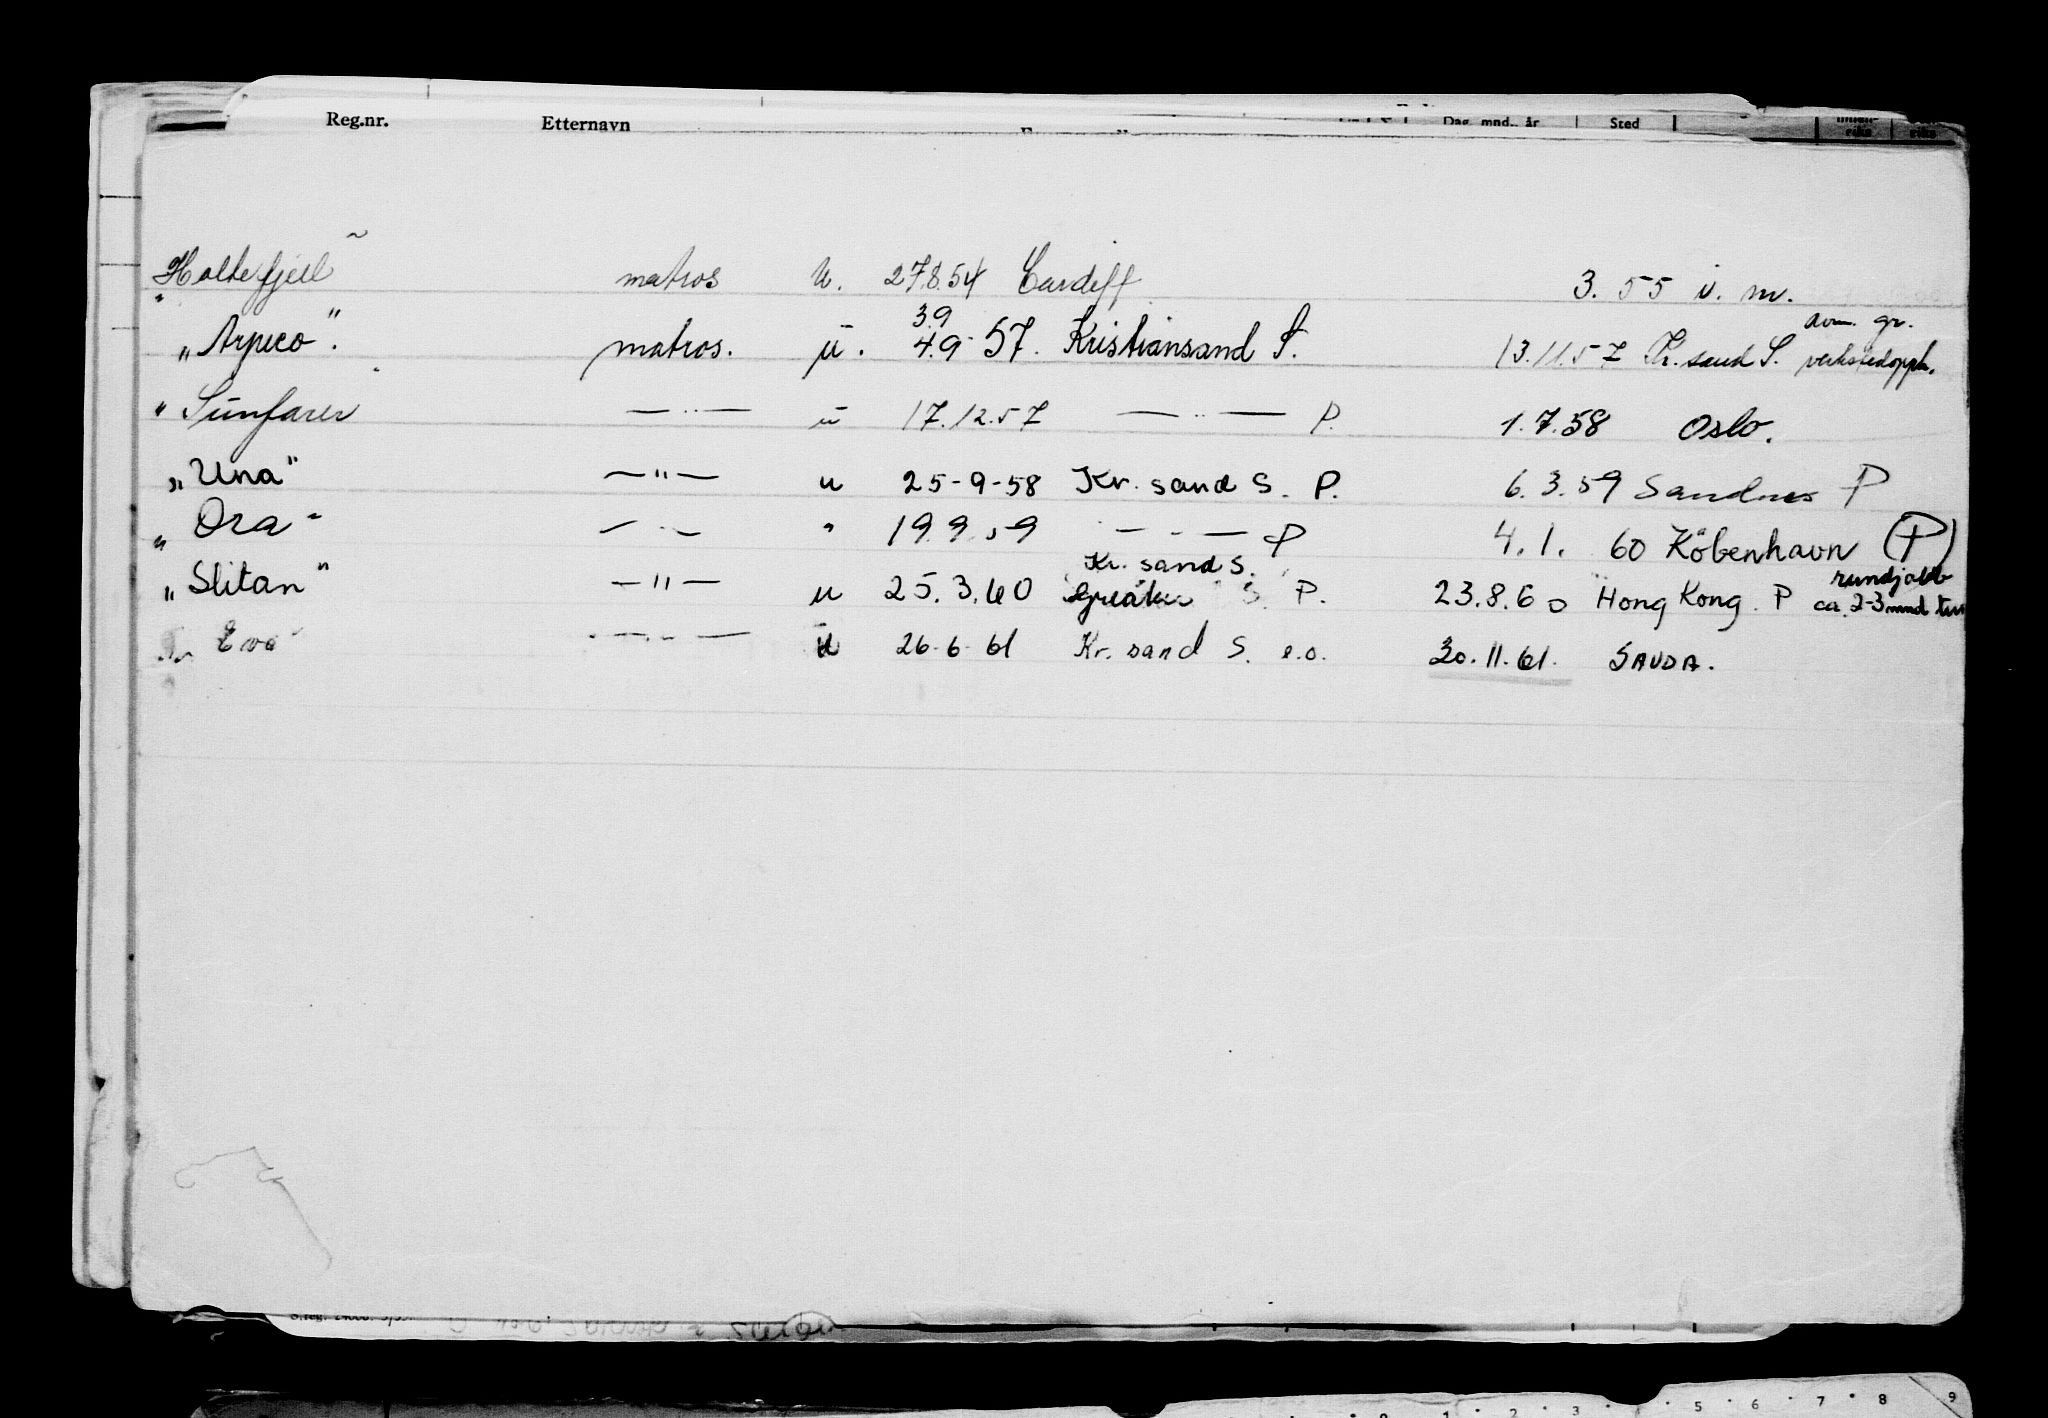 Reg.nr. Etternavn Dag, mnd., år Sted
"Holtefjell" matros u. 27.8.54 Cardiff 3. 55 i. m.
3.9 avm. gr.
„Arpeco". matros. u. 4.9 57. Kristiansand S. 13.11.57 Kr.sand S. verkstedopph.
" Sunfarer — " — u 17.12.57 — " — P. 1.7.58 Oslo.
„Una" — " — u 25-9-58 Kr. sand S. P. 6.3.59 Sandnes P
„ Ora " — " — " 19.9.59 — " — P 4.1. 60 Köbenhavn (P)
Kr. sand S. rundjobb
„Slitan" — " — u 25.3.60 Greåker S. P. 23.8.60 Hong Kong. P ca. 2-3 mnd tur
Eva — " — u 26-6-61 Kr. sand S. e.o. 30.11.61. SAUDA.
1 2 3 5 6 7 8 9